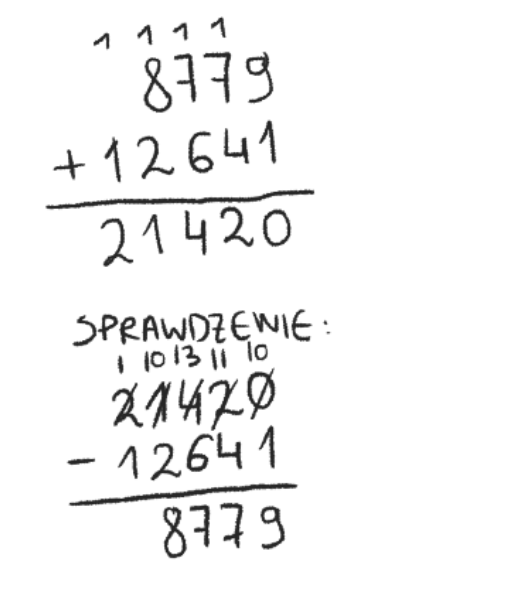 1 1 1 1
8779
+ 12641
21420
SPRAWDZENIE:
1 10 13 11 10
21420
- 12641
8779